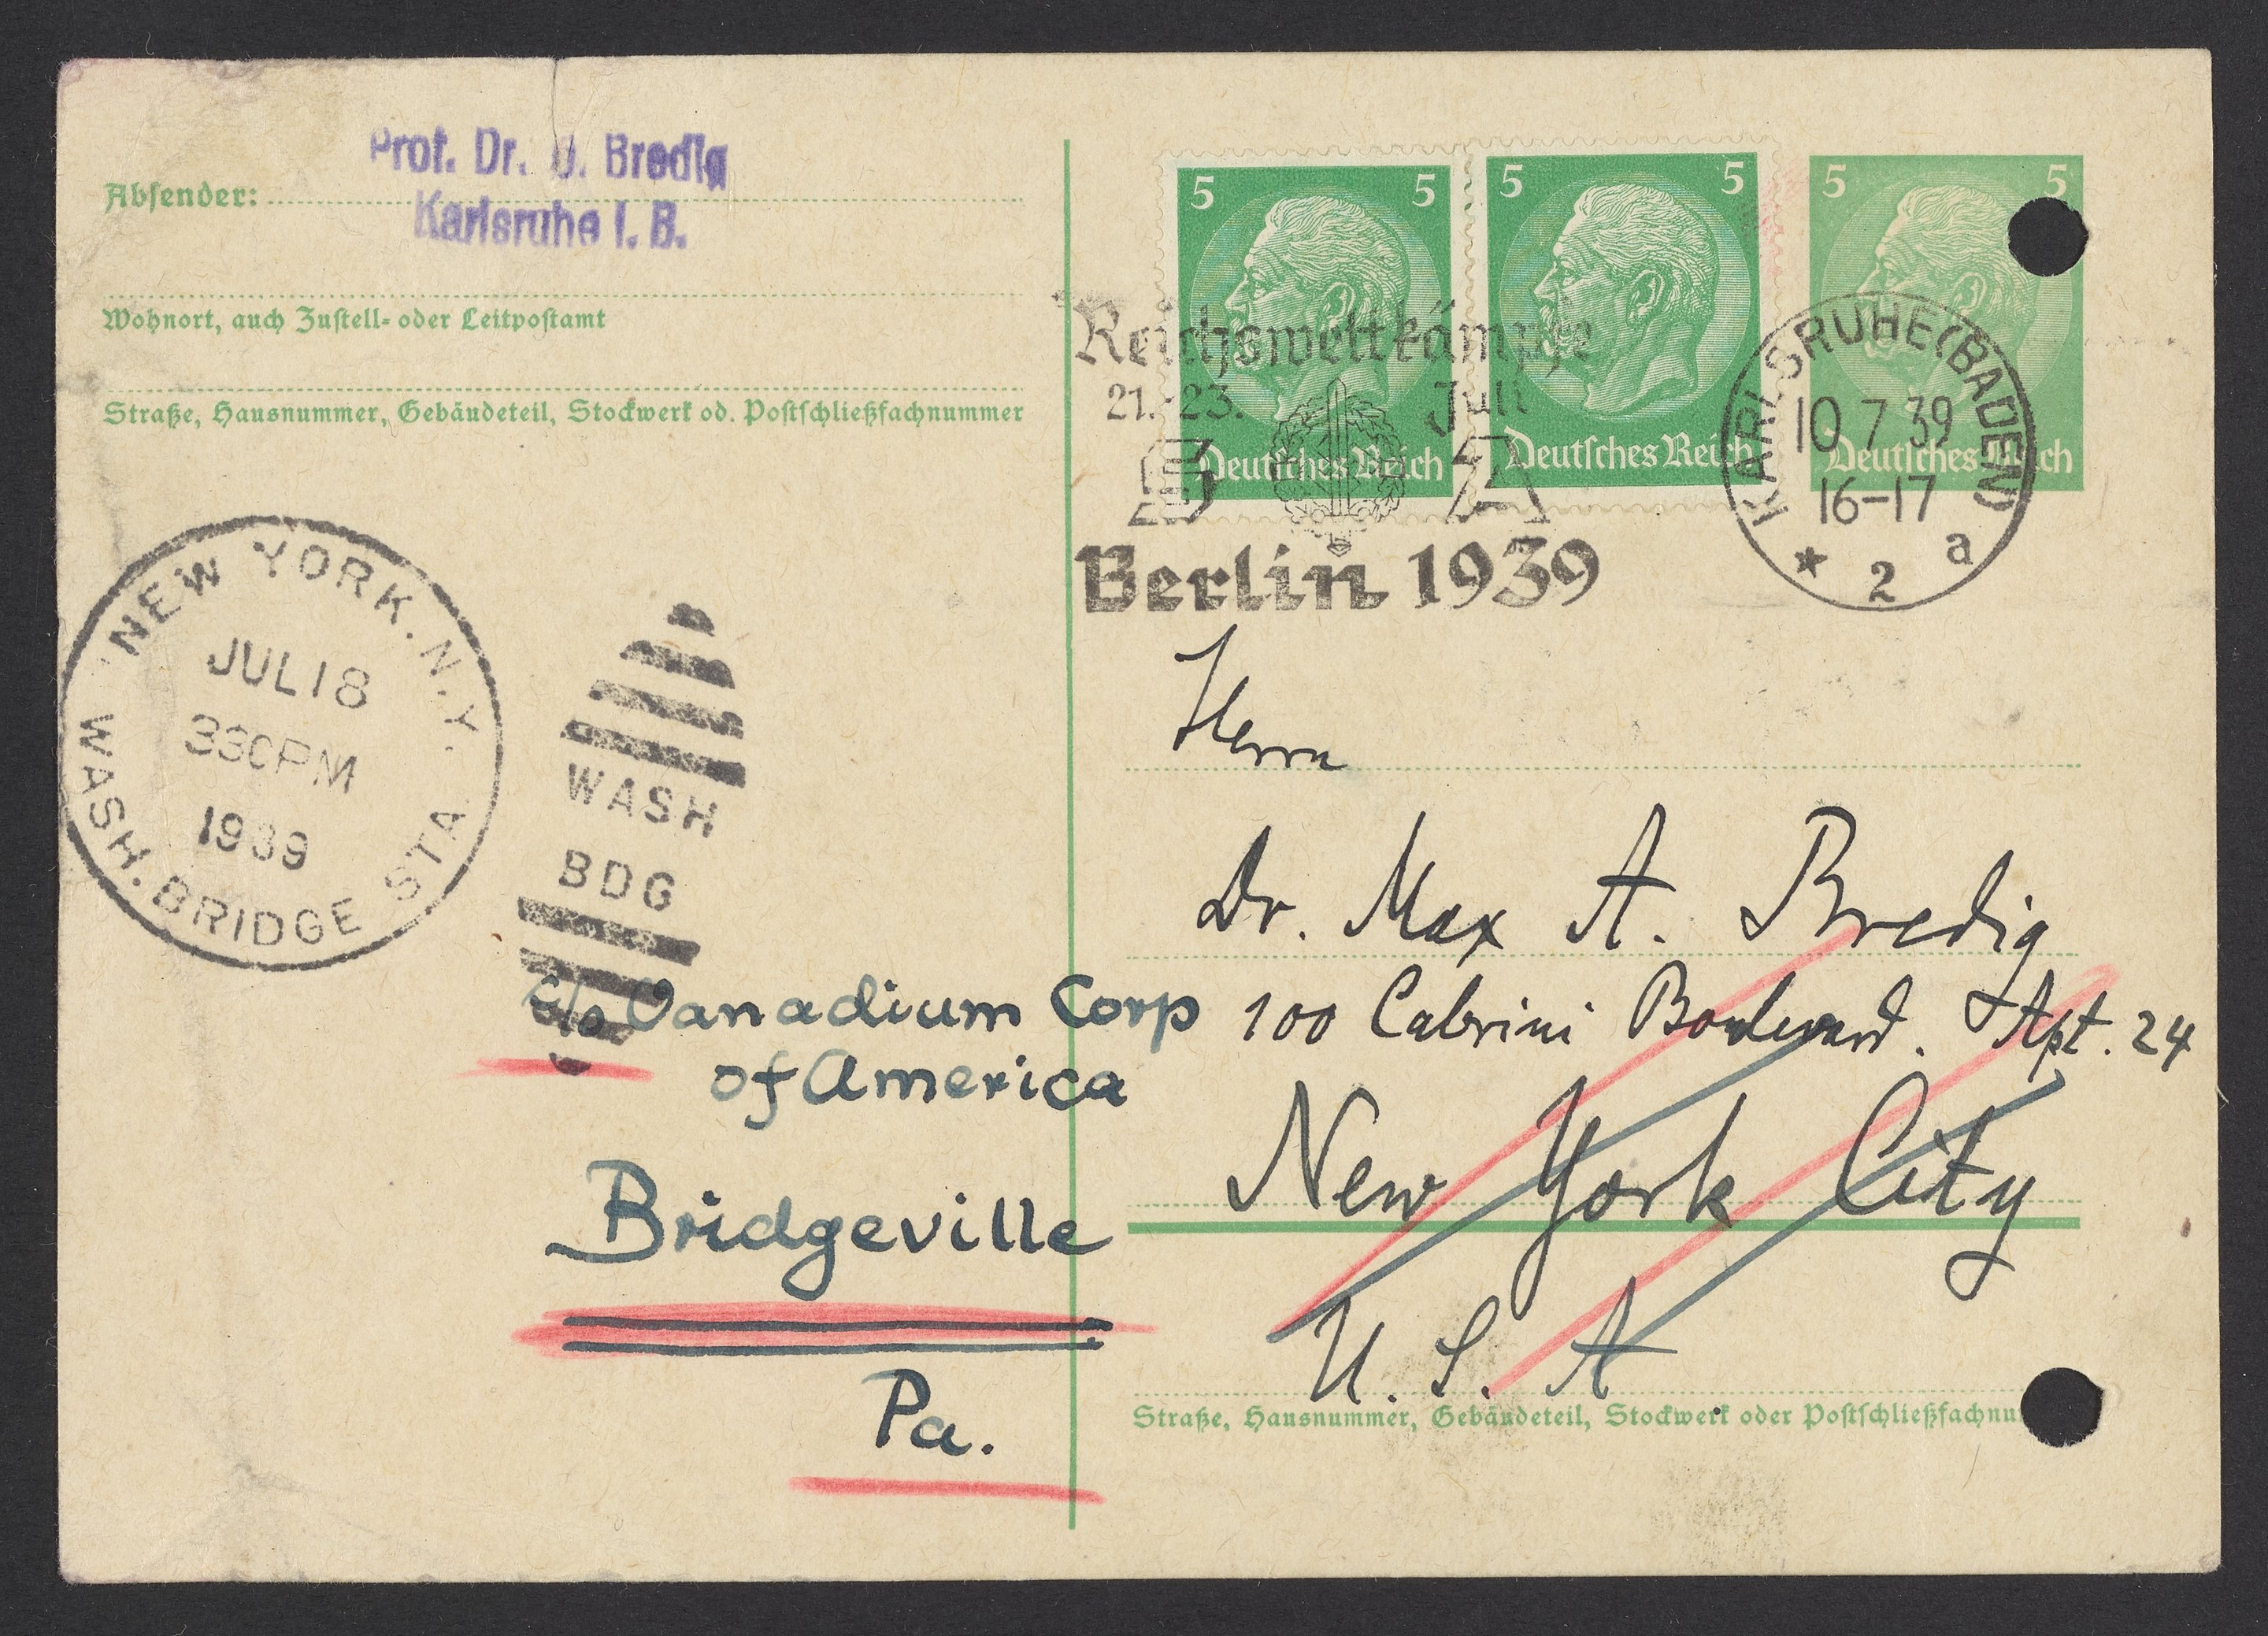 Prof. Dr. G. Bredig
Karlsruhe i. B.
Absender:
Wohnort, auch Zustell- oder Leitpostamt
Straße, Hausnummer, Gebäudeteil, Stockwerk od. Postschließfachnummer
5 5
Deutsches Reich
5 5
Deutsches Reich
5 5
Deutsches Reich
Reichswettkämpfe
21.-23. Juli
SA
Berlin 1939
KARLSRUHE (BADEN)
10 7 39
16-17
* 2 a
NEW YORK. N.Y.
JUL 18
330PM
1939
WASH. BRIDGE STA
WASH
BDG
Herrn
Dr. Max A. Bredig
100 Cabrini Boulevard. Apt. 24
New York City
U. S. A
c/o Vanadium Corp
of America
Bridgeville
Pa.
Straße, Hausnummer, Gebäudeteil, Stockwerk oder Postschließfachnu